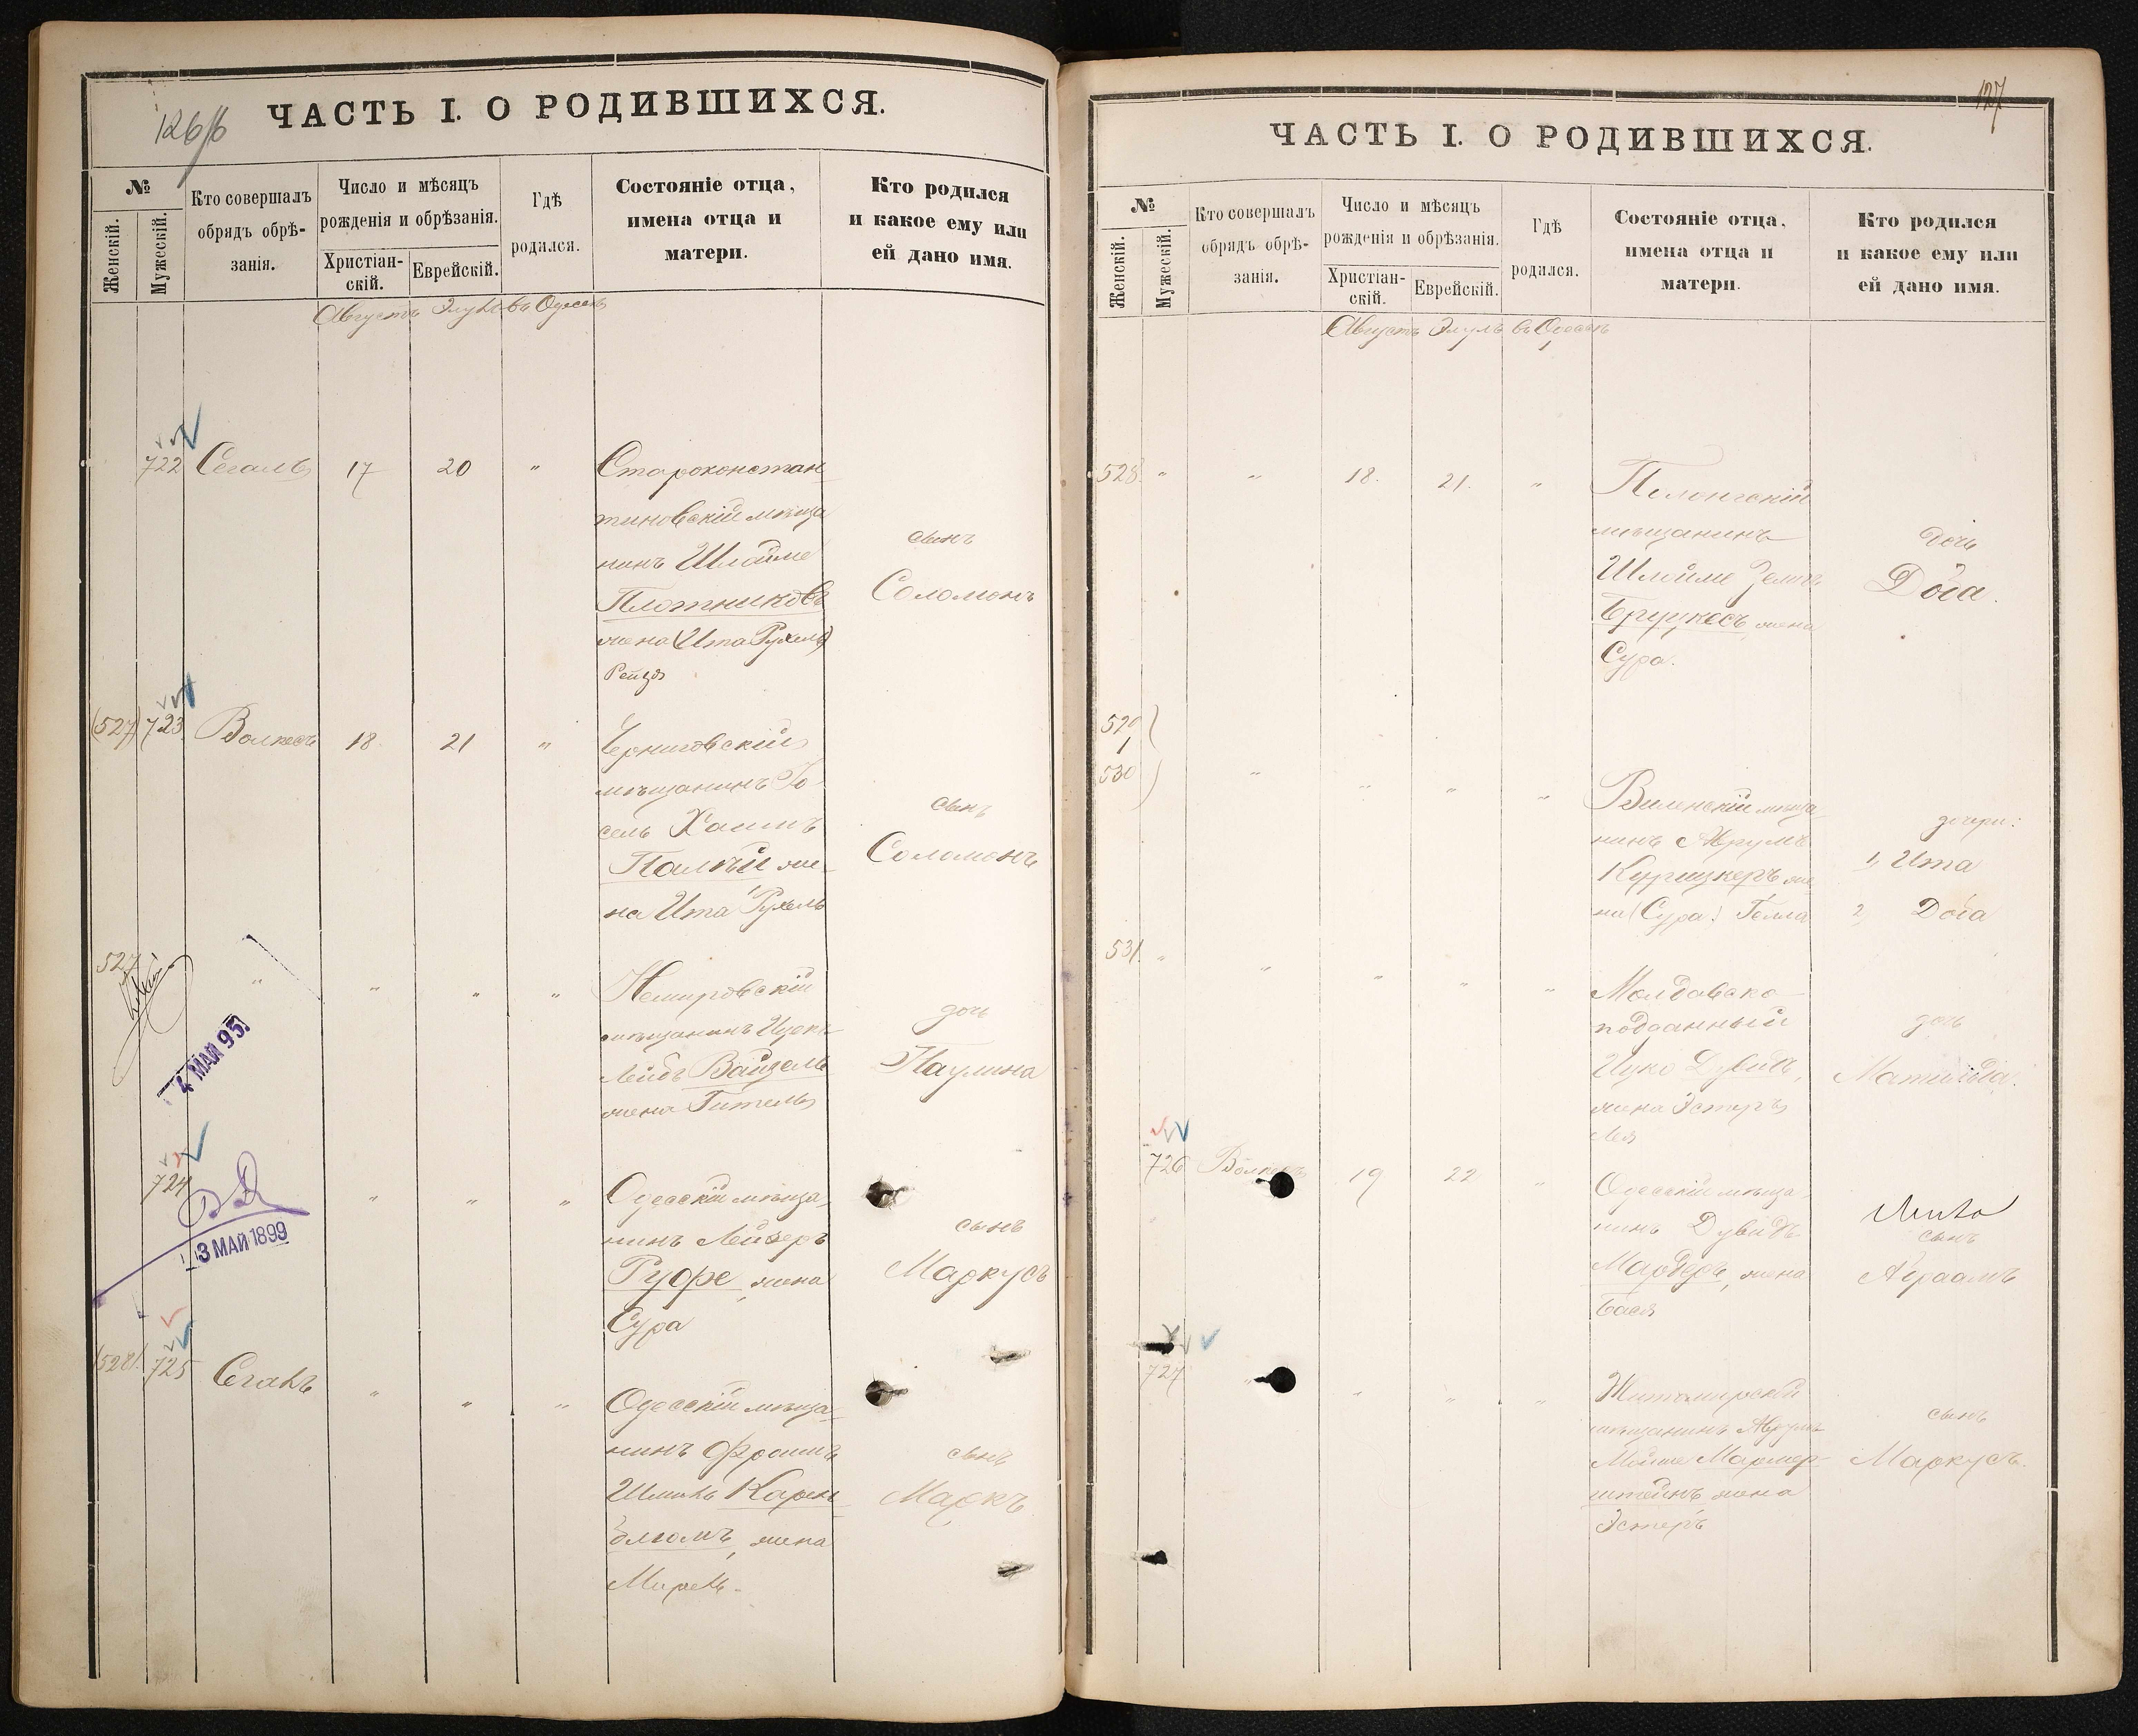 126/б
ЧАСТЬ I. О РОДИВШИХСЯ.
№
Женскій.
Мужескій.
Кто совершалъ
обрядъ обрѣ-
занія.
Число и мѣсяцъ
рожденія и обрѣзанія.
Христіан-
скій.
Еврейскій.
Гдѣ
родился.
Состояніе отца,
имена отца и
матери.
Кто родился
и какое ему или
ей дано имя.
Августъ Элулъ въ Одессѣ
722 Сегалъ 17 20 " Староконстан
тиновскій мѣща
нинъ Шлойме
Плотниковъ
жена (Ита Рухель)
Рейзя
сынъ
Соломонъ
(527) 723 Волкесъ 18 21 " Черниговскій
мѣщанинъ Іо
сель Хаимъ
Палѣй же
на Ита Рухель
сынъ
Соломонъ
527 " " " " Немировскій
мѣщанинъ Ицекъ
Лейбъ Вайзель
жена Гитель
дочь
Паулина
4 МАЙ 95
724 " " " Одесскій мѣща
нинъ Лейзеръ
Руфе, жена
Сура
сынъ
Маркусъ
3 МАЙ 1899
(528). 725 Сегалъ " " " Одесскій мѣща
нинъ Фроимъ
Шмиль Карен
блюмъ, жена
Мирель.
сынъ
Маркъ
127
ЧАСТЬ I. О РОДИВШИХСЯ.
№
Женскій.
Мужескій.
Кто совершалъ
обрядъ обрѣ-
занія.
Число и мѣсяцъ
рожденія и обрѣзанія.
Христіан-
скій.
Еврейскій.
Гдѣ
родился.
Состояніе отца,
имена отца и
матери.
Кто родился
и какое ему или
ей дано имя.
Августъ Элулъ въ Одессѣ
528. " " 18. 21. " Полонскій
мѣщанинъ
Шлойме Зелигъ
Бруцкесъ, жена
Сура.
дочь
Двойа.
529
530 " " " " Виленскій мѣща
нинъ Аврумъ
Курицкеръ же
на (Сура) Гелла
дочери:
1, Ита
2, Двойа
531. " " " " " Молдавско
подданный
Ицко Дувидъ,
жена Эстеръ
Лея
дочь
Матильда.
726 Волкесъ 19 22 " Одесскій мѣща
нинъ Дувидъ
Мардеръ, жена
Бася
сынъ
Абраамъ
727 " " " " Житомирскій
мѣщанинъ Аврумъ
Мойше Мармер
штейнъ жена
Эстеръ
сынъ
Маркусъ.